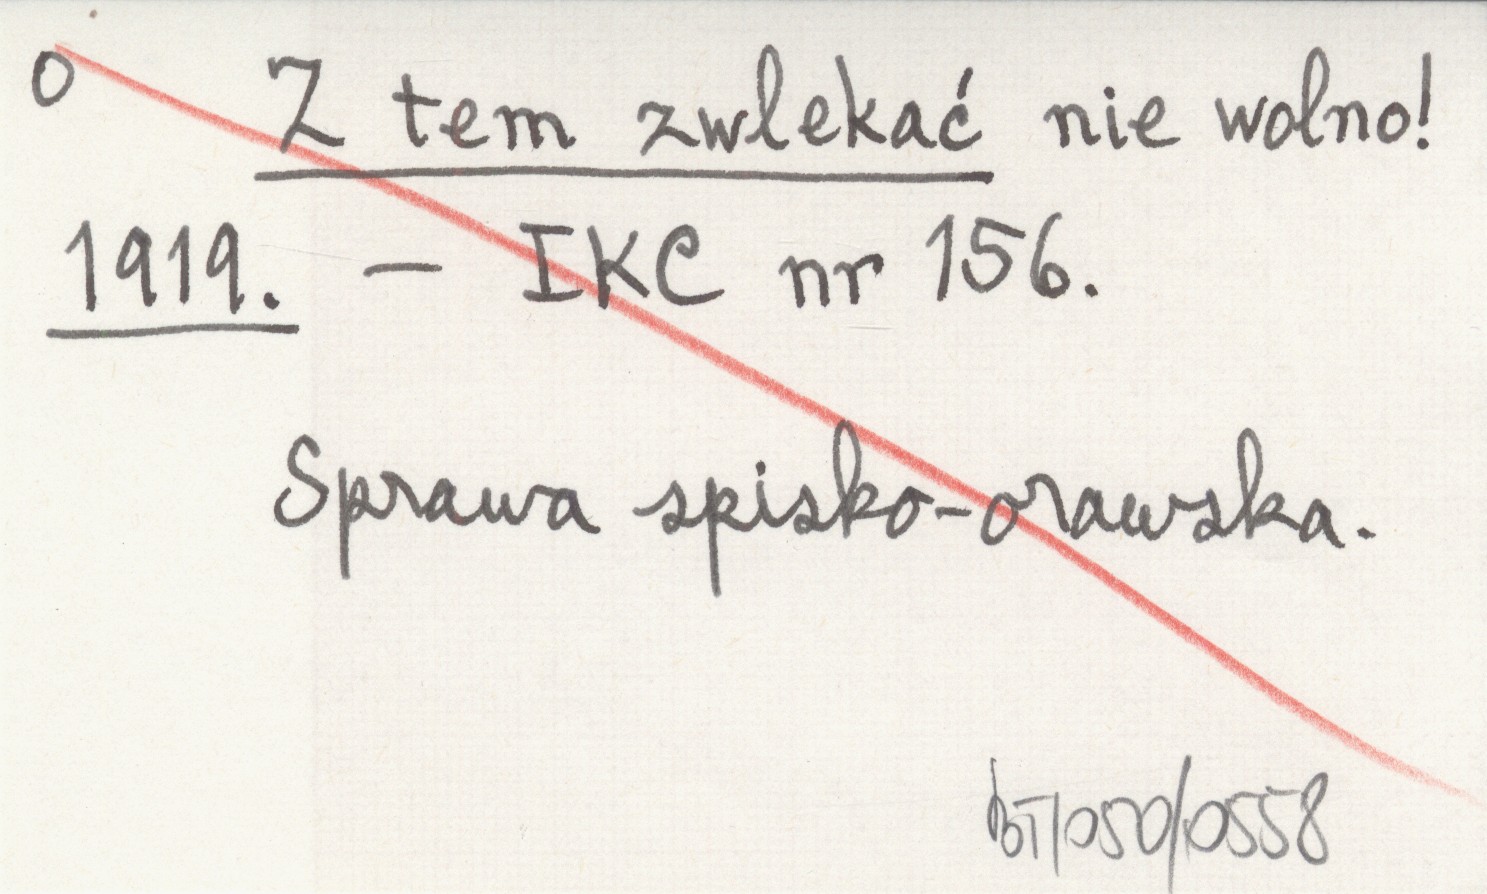 o Z tem zwlekać nie wolno!
1919. – IKC nr 156.
Sprawa spisko-orawska.
BT/050/0558